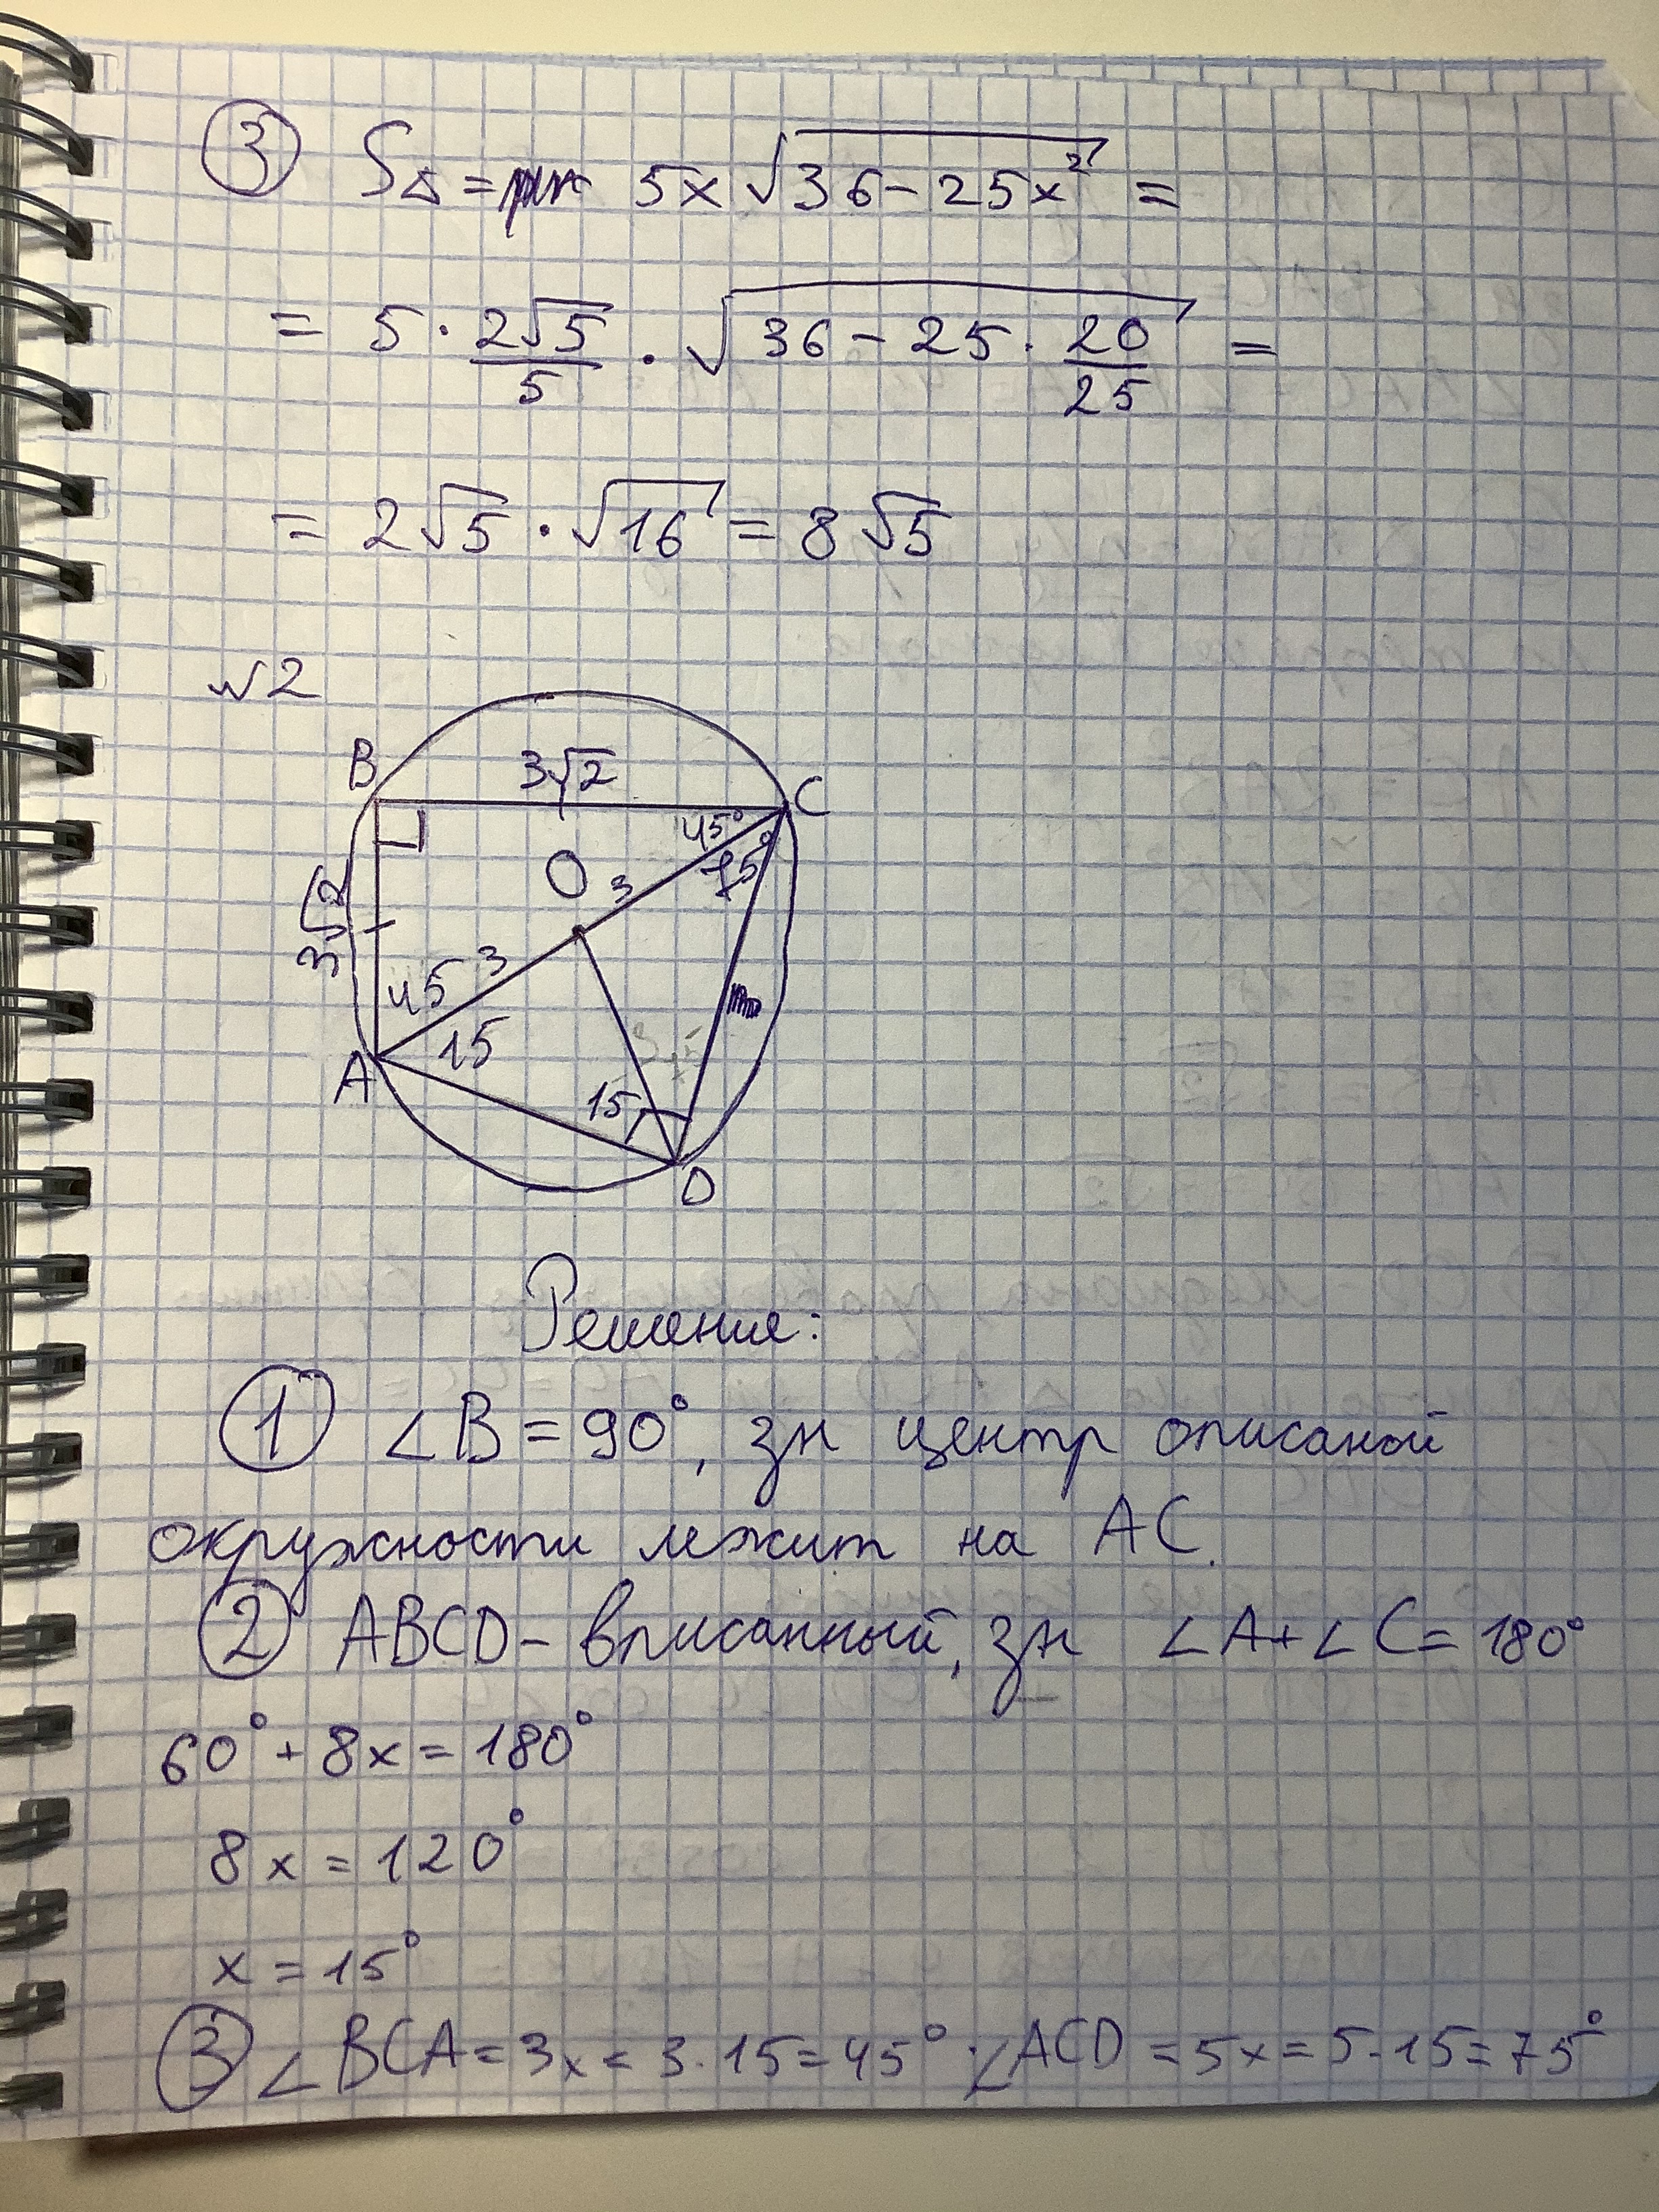 ③ S△ = 5x √36-25x² =
= 5 · 2√5/5 · √36 - 25 · 20/25 =
= 2√5 · √16 = 8√5
№2
B 3√2 C
45°
75°
O 3
3√2
45 3
15
A
15
D
Решение:
① ∠B = 90°, зн центр описаной
окружности лежит на AC.
② ABCD - вписанный, зн ∠A+∠C=180°
60° + 8x = 180°
8x = 120°
x = 15°
③ ∠BCA = 3x = 3·15 = 45° · ∠ACD = 5x = 5·15 = 75°